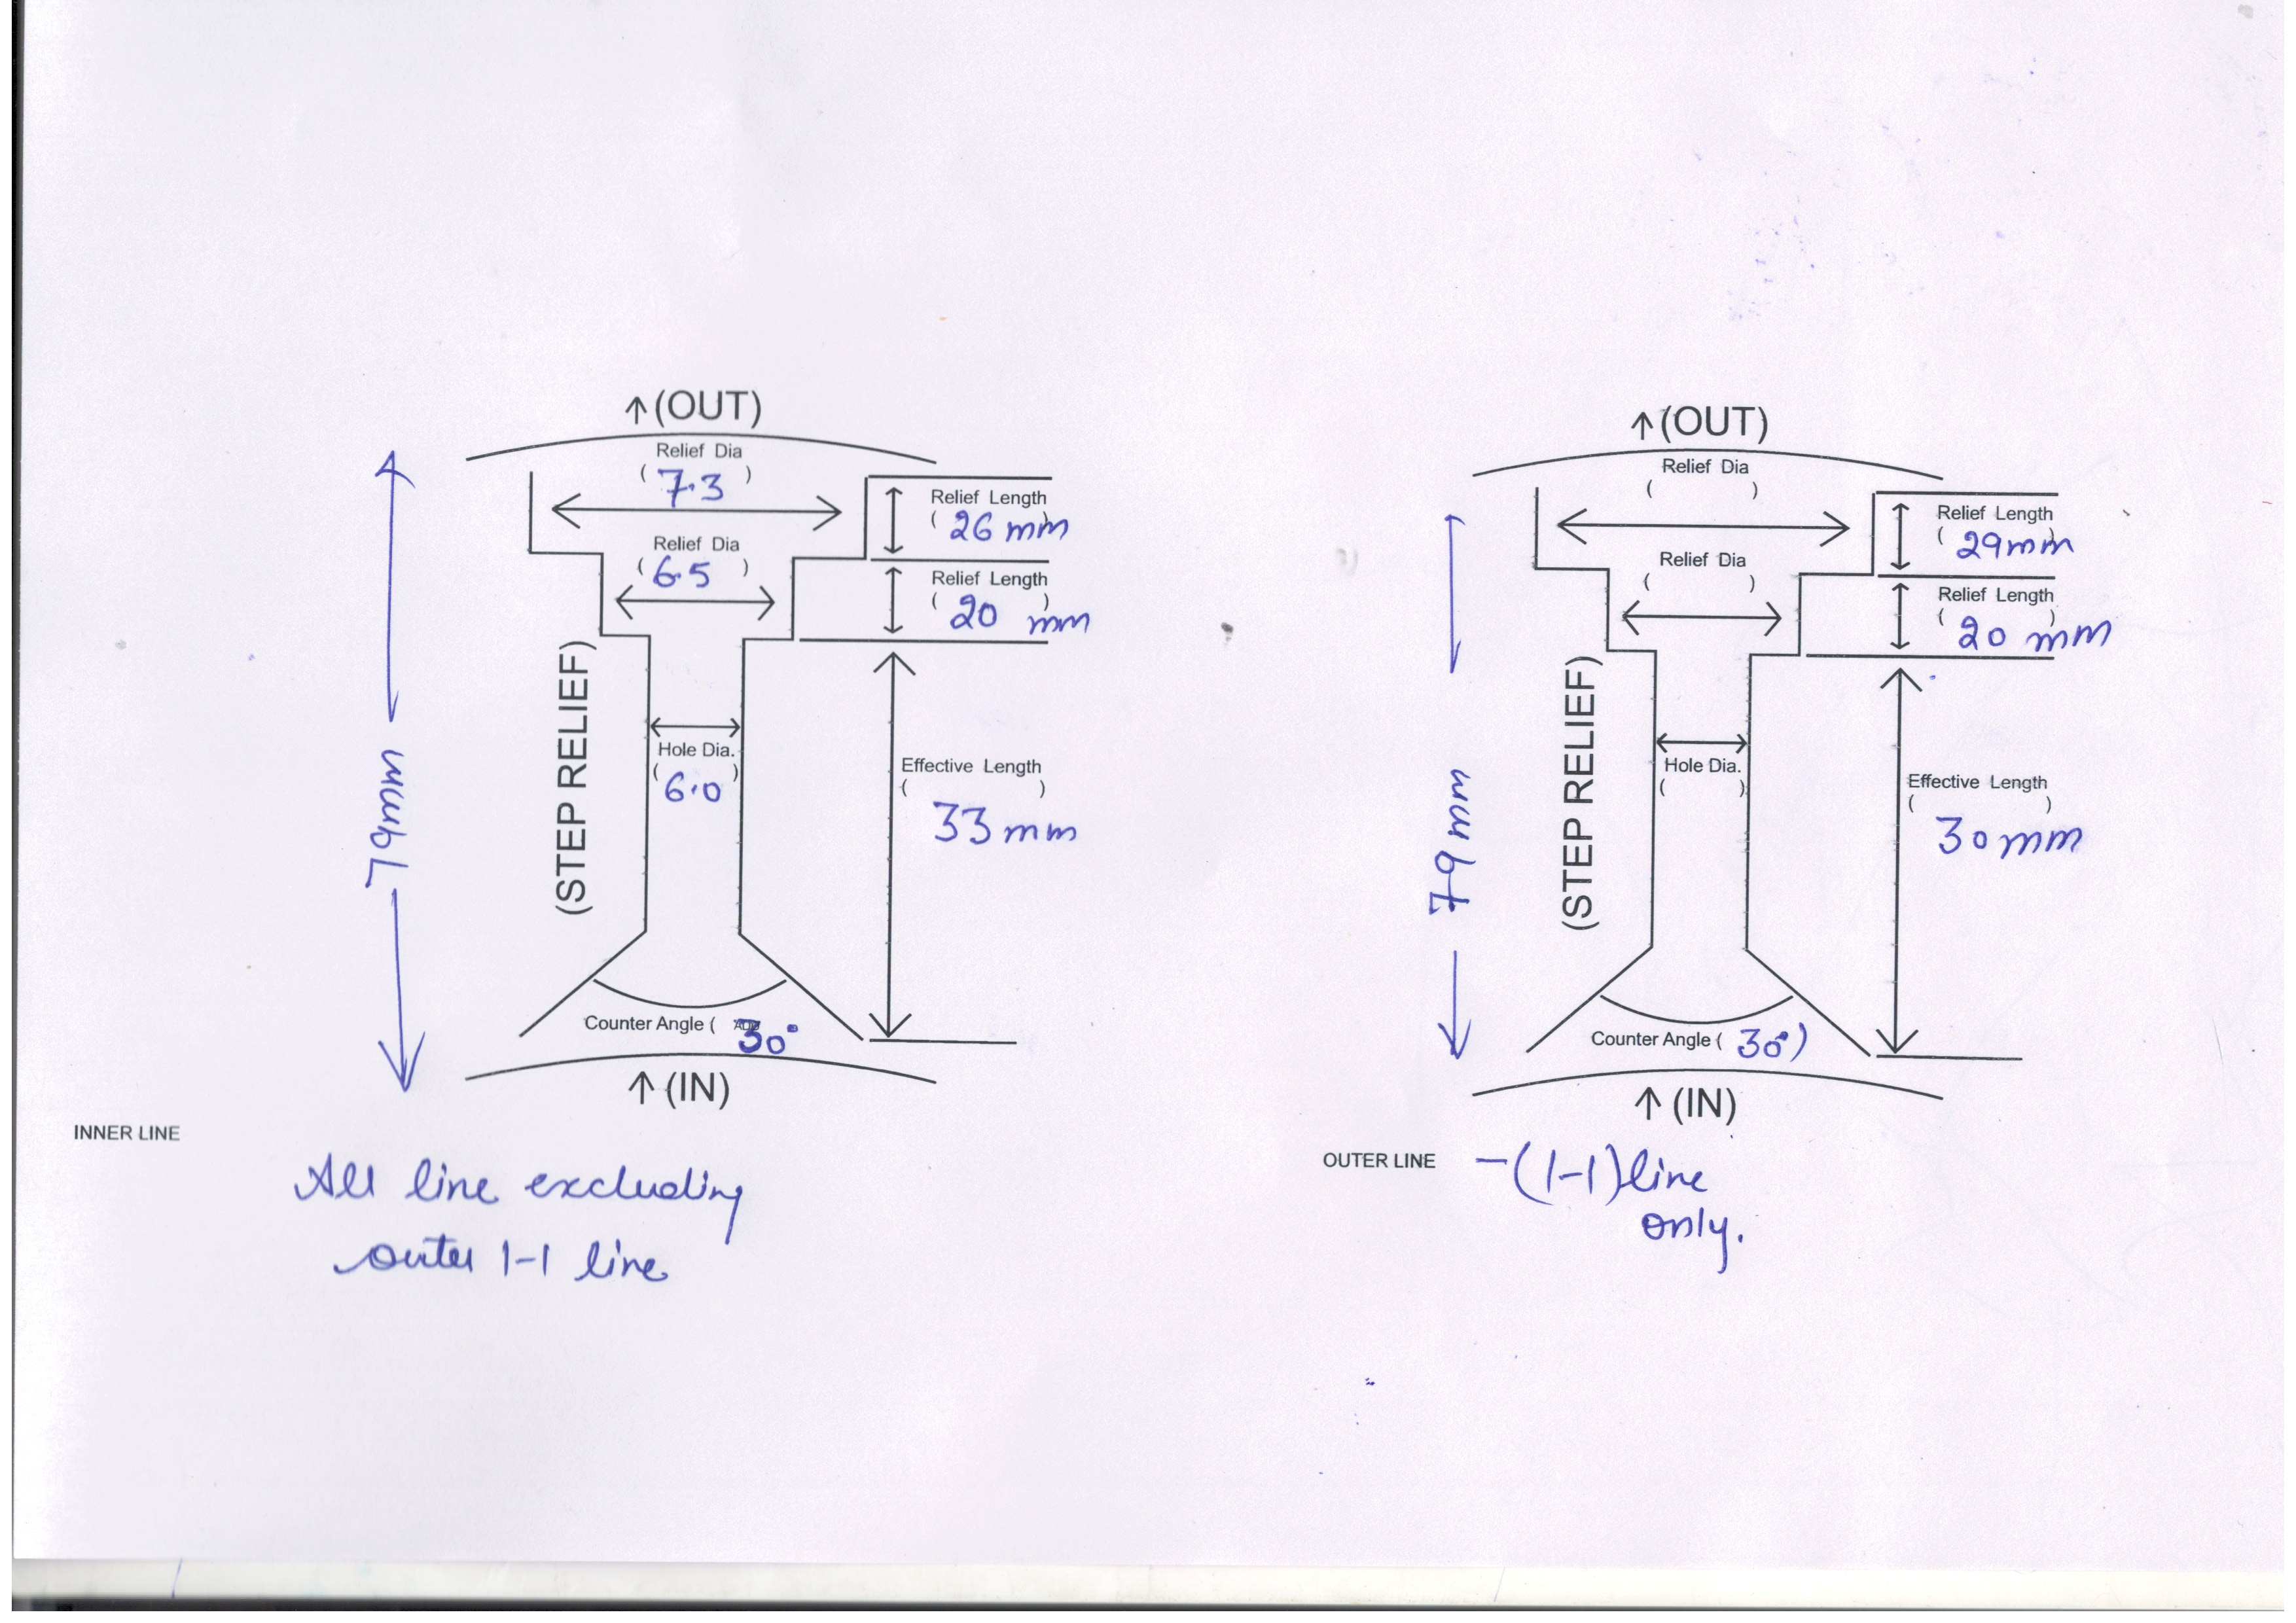 ↑(OUT)
Relief Dia
( 7.3 )
Relief Length
( 26 mm )
Relief Dia
( 6.5 )
Relief Length
( 20 mm )
(STEP RELIEF)
Hole Dia.
( 6.0 )
Effective Length
( )
33 mm
79mm
Counter Angle ( 30°
↑(IN)
INNER LINE
All line excluding
outer 1-1 line
↑(OUT)
Relief Dia
( )
Relief Length
( 29mm )
Relief Dia
( )
Relief Length
( 20 mm )
(STEP RELIEF)
Hole Dia.
( )
Effective Length
( )
30 mm
79 mm
Counter Angle ( 30° )
↑(IN)
OUTER LINE - (1-1) line
only.